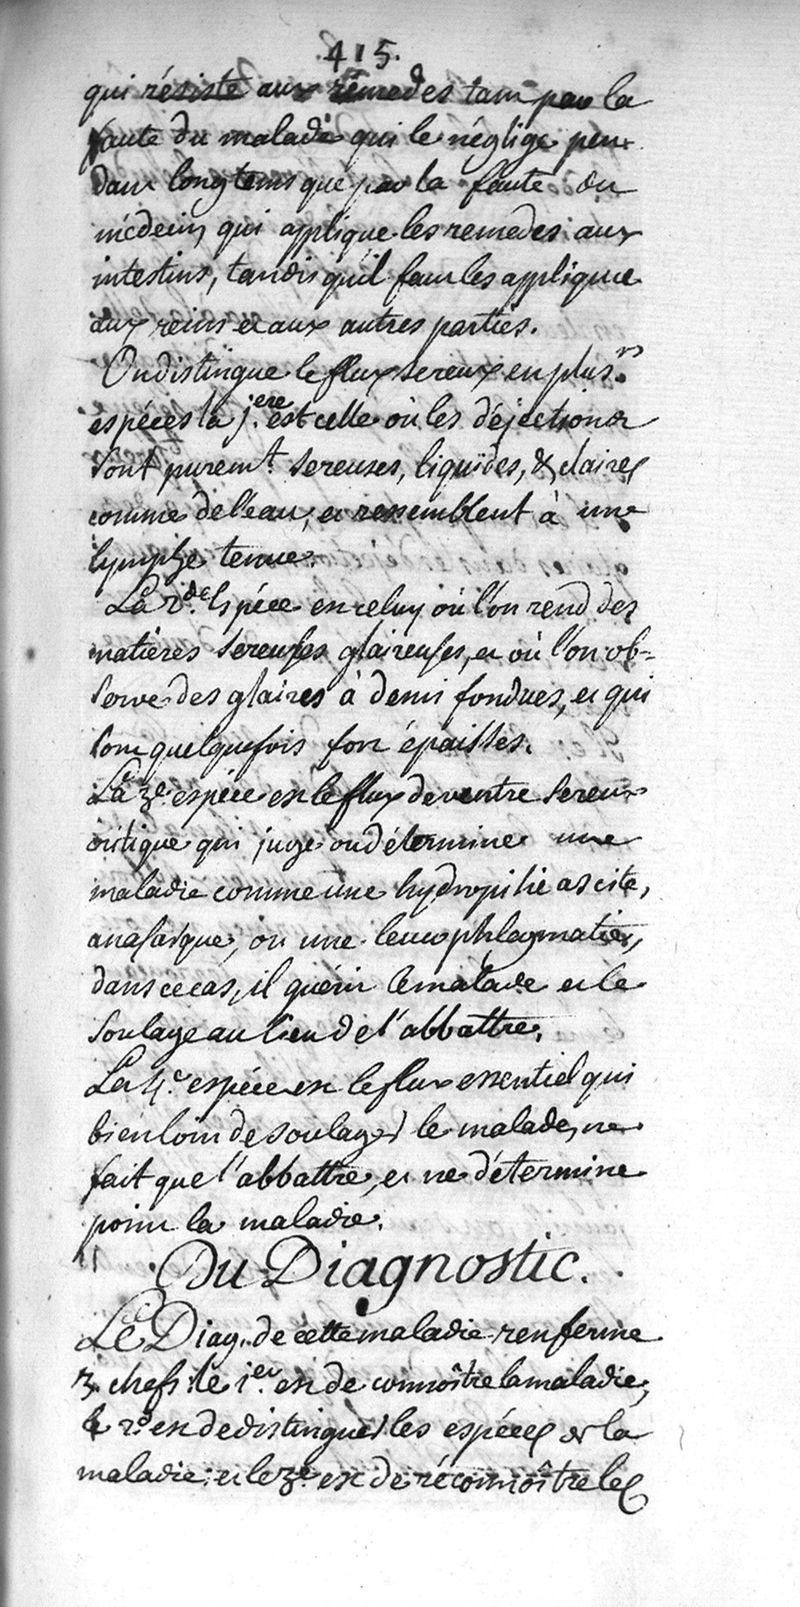 415.
qui résiste aux rémedes tant par la
faute du malade qui le néglige pen-
dant longtems que par la faute du
médecin qui applique les remedes aux
intestins, tandis qu'il faut les applique
aux reins et aux autres parties.
On distingue le flux sereux en plus.rs
espéces la j.ere est celle où les déjections
sont purem.t sereuses, liquides, & claires
comme de l'eau, et ressemblent à une
lymphe tenue.
La 2.de Espéce est celuy où l'on rend des
matières sereuses glaireuses, et où l'on ob=
serve des glaires à demi fondues, et qui
sont quelquefois fort épaisses.
La 3.e espéce est le flux de ventre sereux
critique qui juge ou détermine une
maladie comme une hydropisie ascite,
anasarque, ou une leucophlegmatie,
dans ce cas, il guérit le malade et le
soulage au lieu de l'abbattre.
La 4.e espéce est le flux essentiel qui
bien loin de soulager le malade, ne
fait que l'abbattre, et ne détermine
point la maladie.
Du Diagnostic.
Le Diag. de cette maladie renferme
3. chefs: le 1.er est de connoître la maladie,
le 2.d est de distinguer les espéces de la
maladie; et le 3.e est de réconnoître les